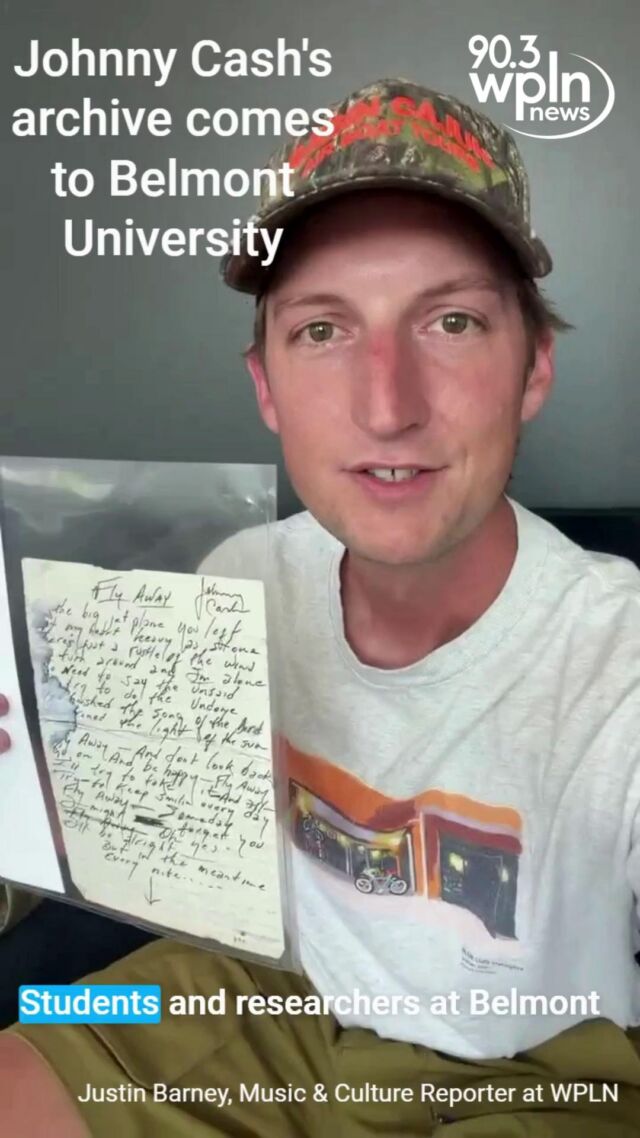 Johnny Cash's
archive comes
to Belmont
University
90.3
wpln
news
Fly Away
Johnny
Cash
the big jet plane you left
my heart heavy as stone
just a rustle of the wind
turn around and I'm alone
need to say the unsaid
try to do the undone
hushed the song of the bird
the light of the sun
Away — And dont look back
go on And be happy — Fly Away
try to
Keep smilin every day
Fly Away — Someday
I might forget you
Oh yes
be alright
But in the meantime
Every nite.....
Students and researchers at Belmont
Justin Barney, Music & Culture Reporter at WPLN